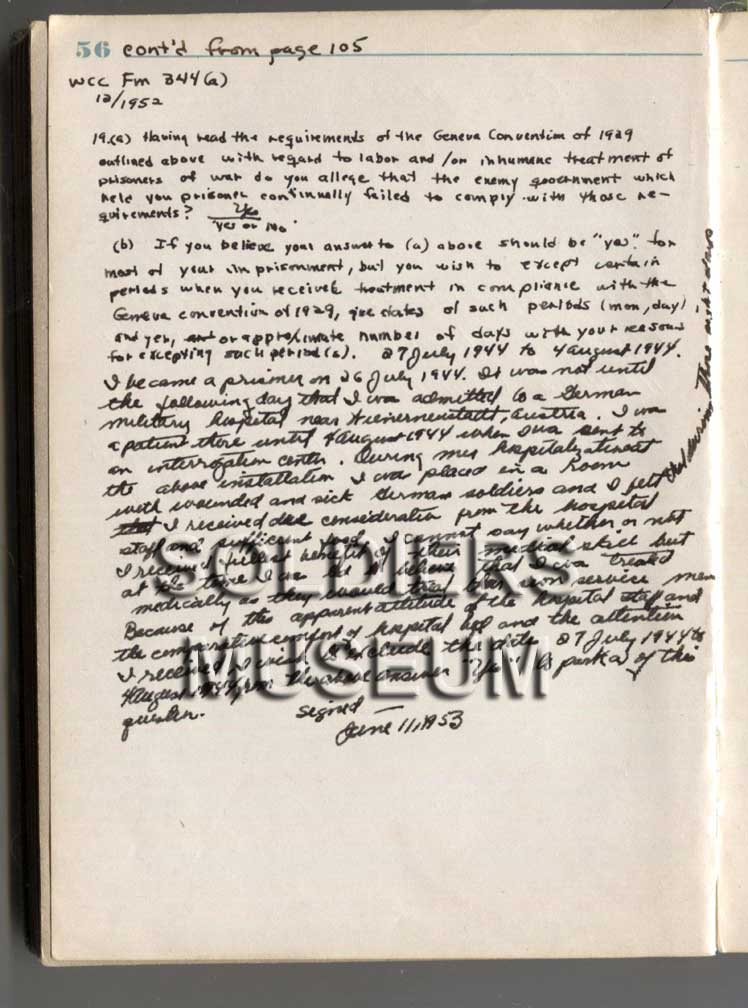 56 cont'd from page 105
WCC Fm 244(a)
12/1952
19.(a) Having read the requirements of the Geneva Convention of 1929
outlined above with regard to labor and/or inhumane treatment of
prisoners of war do you allege that the enemy government which
held you prisoner continually failed to comply with those re-
quirements? Yes
Yes or No.
(b) If you believe your answer to (a) above should be "yes" for
most of your imprisonment, but you wish to except certain
periods when you received treatment in compliance with the
Geneva convention of 1929, give dates of such periods (mon, day)
and yer, and or approximate number of days with your reasons
for excepting such period(s). 27 July 1944 to 4 August 1944.
I became a prisoner on 26 July 1944. It was not until
the following day that I was admitted to a German
military hospital near Wienerneustadt, Austria. I was
a patient there until 4 August 1944 when I was sent to
an interrogation center. During my hospitalization at
the above installation I was placed in a room
with wounded and sick German soldiers and I felt
that during those eight days
that I received due consideration from the hospital
staff and sufficient food. I cannot say whether or not
I received fullest benefit of their medical skill but
at the time I was led to believe that I was treated
medically as they would treat their own service men
Because of the apparent attitude of the hospital staff and
the comparative comfort of hospital bed and the attention
I received I wish to exclude the dates 27 July 1944 to
4 August 1944 from the above answer "Yes" to part a of this
question.
signed —
June 11, 1953
SOLDIERS
MUSEUM